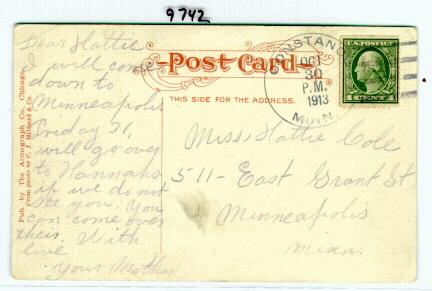 9742
Dear Hattie
I will come
down to
Minneapolis
Friday 31,
will go over
to Hannahs
if we do not
see you. You
can come over
their. With
love
Your Mother
Pub. by The Acmegraph Co., Chicago.
From photo by C. J. Hibbard & Co.
Post Card
THIS SIDE FOR THE ADDRESS.
CONSTANCE
OCT
30
P.M.
1913
MINN.
U.S. POSTAGE
1 CENT 1
Miss Hattie Cole
511- East Grant St
Minneapolis
Minn.